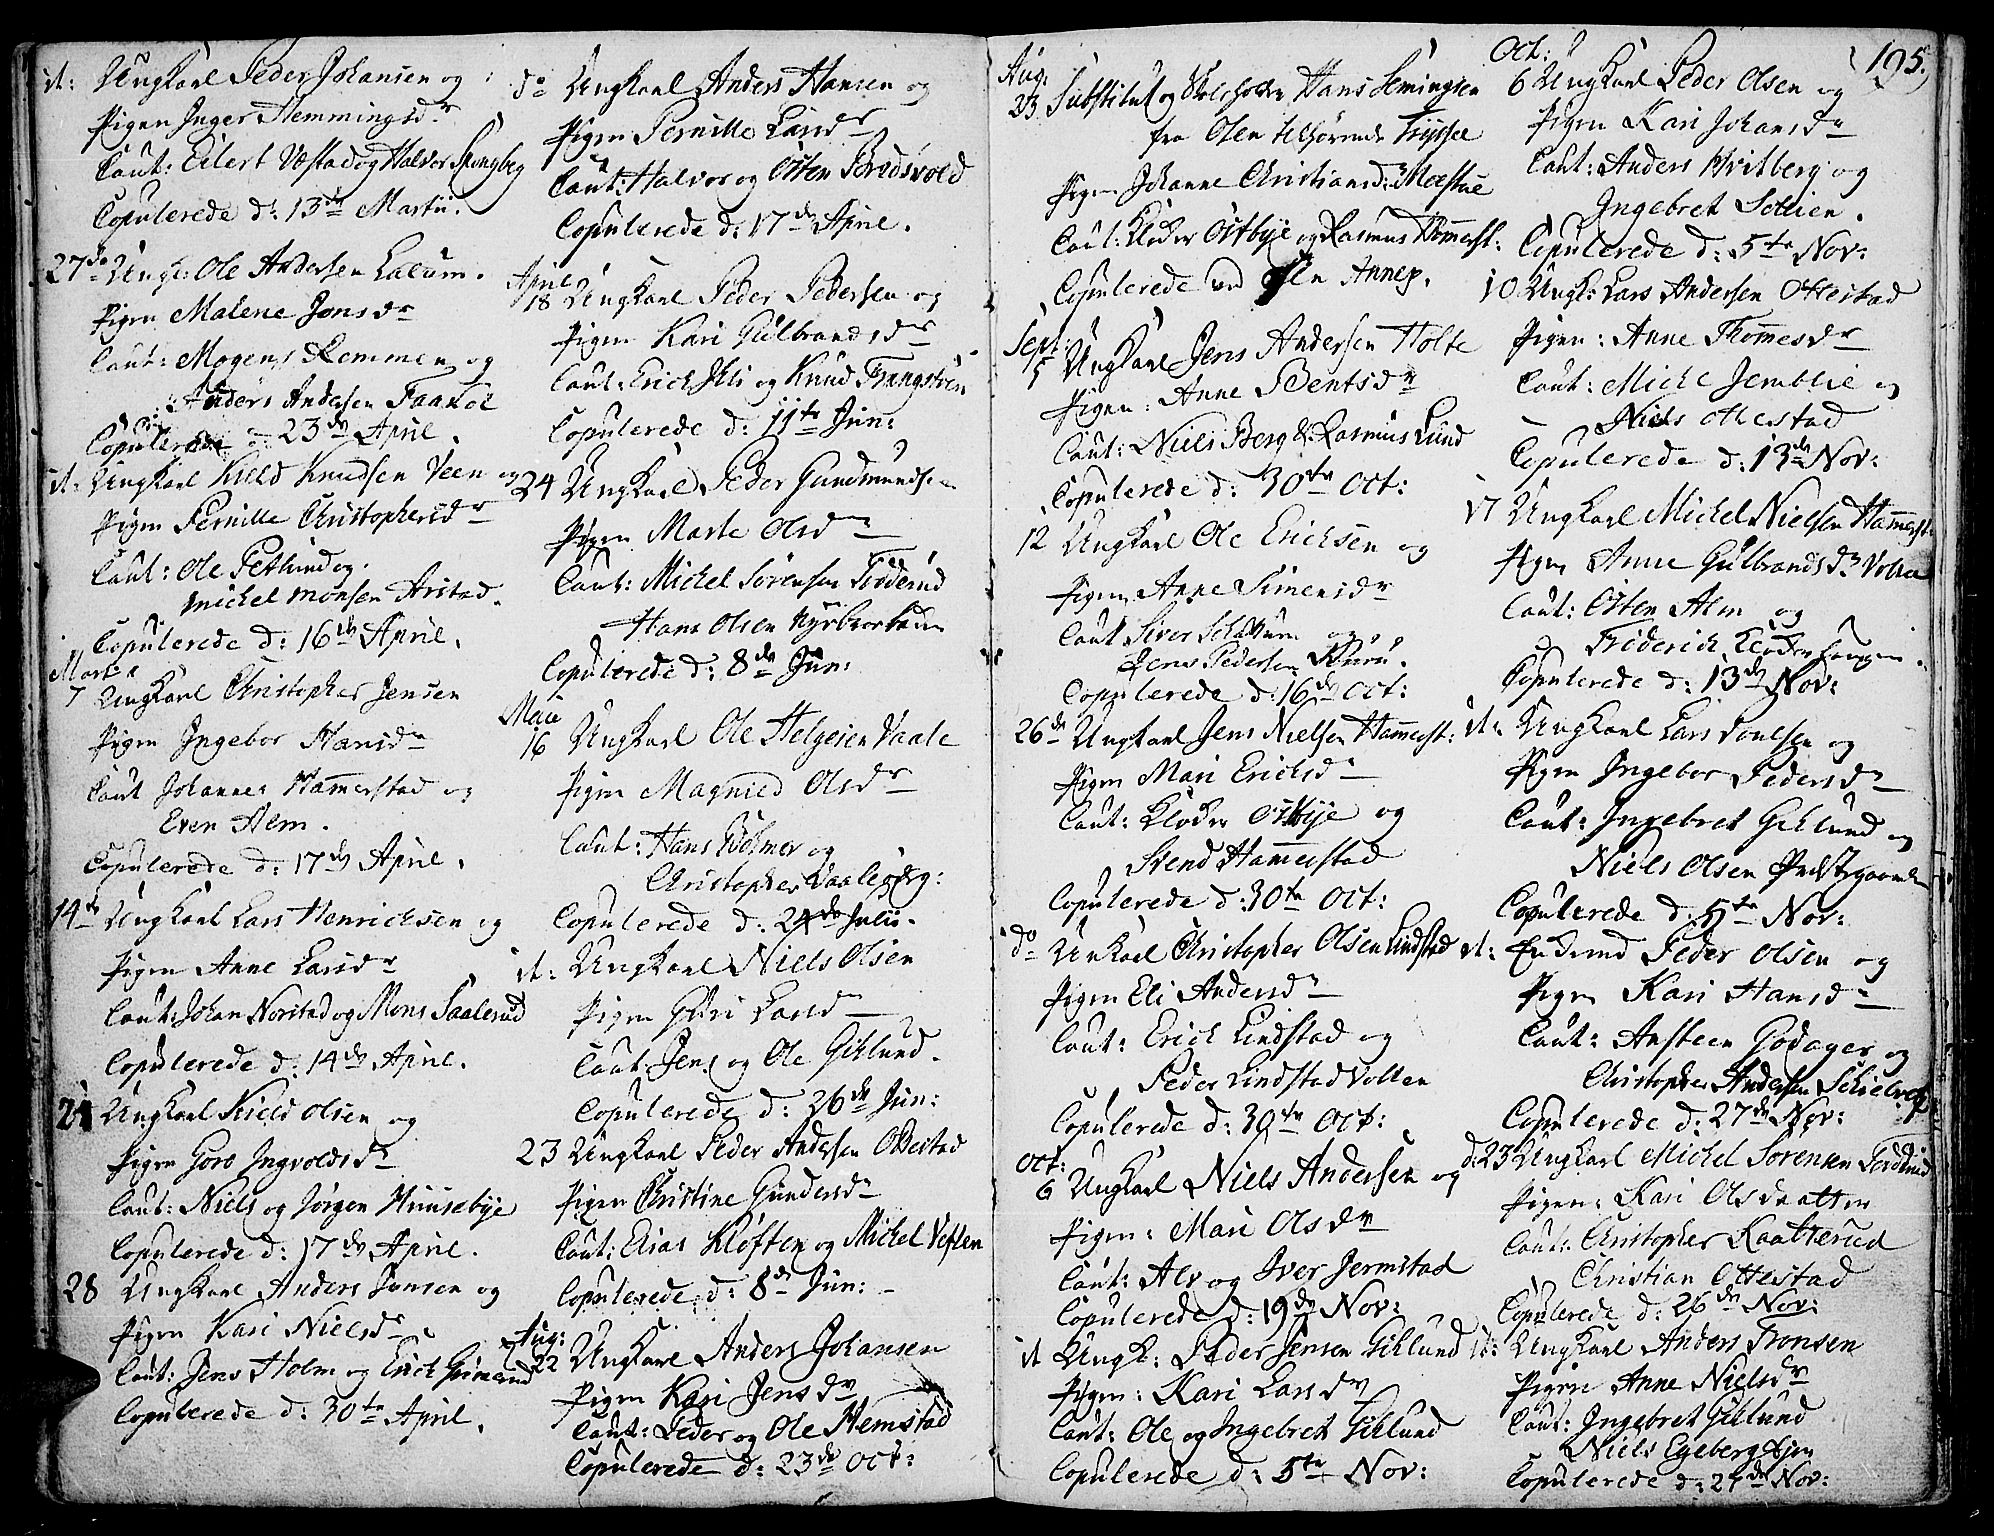 it: Ungkarl Peder Johansen og
Pigen Inger Hemmingsdr
Caut: Eilert Vestad og Halvor Skongbeg
Copulerede d: 13de Martii.
27de Ungk: Ole Andersen Lalum.
Pigen Malene Jonsdr
Caut: Mogens Remmen og
Anders Andersen Faakol
Copulerede d: 23de April.
it: Ungkarl Kield Knudsen Veen og
Pigen Pernille Christophersdr
Caut: Ole Petlund og
Michel Monsen Arstad.
Copulerede d: 16de April.
Martii
7 Ungkarl Christopher Jensen
Pigen Ingebor Hansdr
Caut Johannes Hamerstad og
Even Alm.
Copulerede d: 17de April.
14de Ungkarl Lars Henrichsen og
Pigen Anne Larsdr
Caut: Johan Norstad og Mons Saalerud
Copulerede d: 14de April.
21 Ungkarl Kield Olsen og
Pigen Goro Ingvoldsdr
Caut: Niels og Jørgen Huusebye
Copulerede d: 17de April.
28 Ungkarl Anders Jonsen og
Pigen Kari Nielsdr
Caut: Jens Holm og Erich Grimerud
Copulerede d: 30te April.
do Ungkarl Anders Hansen og
Pigen Pernille Larsdr
Caut: Halvor og Østen Bredsvold
Copulerede d: 17de April.
April
18 Ungkarl Peder Pedersen og
Pigen Kari Gulbrandsdr
Caut: Erich Skli og Knud Frangstuen
Copulerede d: 11te Jun:
24 Ungkarl Peder Gundmunds.
Pigen Marte Olsdr
Caut: Michel Sørensen Troderud
Hans Olsen
Copulerede d: 8de Jun:
Maii
16 Ungkarl Ole Helgesen Vaale
Pigen Magnild Olsdr
Caut: Hans Bolmer og
Christopher Vaalebjerg:
Copulerede d: 24de Julii.
it: Ungkarl Niels Olsen
Pigen Guri Larsdr
Caut: Jens og Ole Giklund.
Copulerede d: 26de Jun:
23 Ungkarl Peder Andersen Ottestad
Pigen Christine Gundersdr
Caut: Elias Kløften og Michel Veflen
Copulerede d: 8de Jun:
Aug:
22 Ungkarl Anders Johansen
Pigen Kari Jensdr
Caut: Peder og Ole Hemstad
Copulerede d: 23de Oct:
195.
Aug:
23 Substitut og Skoleholder Hans Semingsen
fra Olen tilhørende Trysse
Pigen Johanne Christiansdr Moestue
Caut: Kloder Østbye og Rasmus Hamerst:
Copulerede ved
Sept:
5 Ungkarl Jens Andersen Holte
Pigen: Anne Bentsdr
Caut: Niels Berg & Rasmus Lund
Copulerede d: 30te Oct:
12 Ungkarl Ole Erichsen og
Pigen Anne Simensdr
Caut Siver Schavum og
Jens Pedersen
Copulerede d: 16de Oct:
26de Ungkarl Jens Nielsen Hamerst:
Pigen Mari Erichsdr
Caut: Kloder Østbye og
Svend Hammerstad
Copulerede d: 30te Oct:
do Unkarl Christopher Olsen Lindstad
Pigen Eli Andersdr
Caut: Erich Lindstad og
Peder Lindstad Vollen
Copulerede d: 30te Oct:
Oct:
6 Ungkarl Niels Andersen og
Pigen: Mari Olsdr
Caut: Alv og Iver Jermstad
Copulerede d: 19de Nov:
it Ungk: Peder Jensen Giklund
Pigen: Kari Larsdr
Caut: Ole og Ingebret Giklund
Copulerede d: 5te Nov:
Oct:
6 Ungkarl Peder Olsen og
Pigen Kari Johansdr
Caut: Anders Hvitberg og
Ingebret Setlien.
Copulerede d: 5te Nov:
10 Ungk: Lars Andersen Ottestad
Pigen: Anne Thomesdr
Caut: Michel Jemblie og
Niels Ottestad
Copulerede d: 13de Nov:
17 Ungkarl Michel Nielsen Hamerst:
Pigen Anne Gulbrandsdr Volla
Caut: Østen Alm og
Friderich
Copulerede d: 13de Nov:
it: Ungkarl Lars Poulsen og
Pigen Ingebor Pedersdr
Caut: Ingebret Giklund og
Niels Olsen Præstgaarden
Copulerede d: 5te Nov:
it: Enkemd Peder Olsen og
Pigen Kari Hansdr
Caut: Ansteen Godager og
Christopher Andersen
Copulerede d: 27de Nov:
d: 23 Ungkarl Michel Sørensen Troderud
Pigen: Kari Olsdaatter
Caut: Christopher Kaatterud
Christian Ottestad
Copulerede d: 26de Nov:
it: Ungkarl Anders Tronsen
Pigen Anne Nielsdr
Caut: Ingebret Giklund
Niels Egeberg Ejen
Copulerede d: 27de Nov: